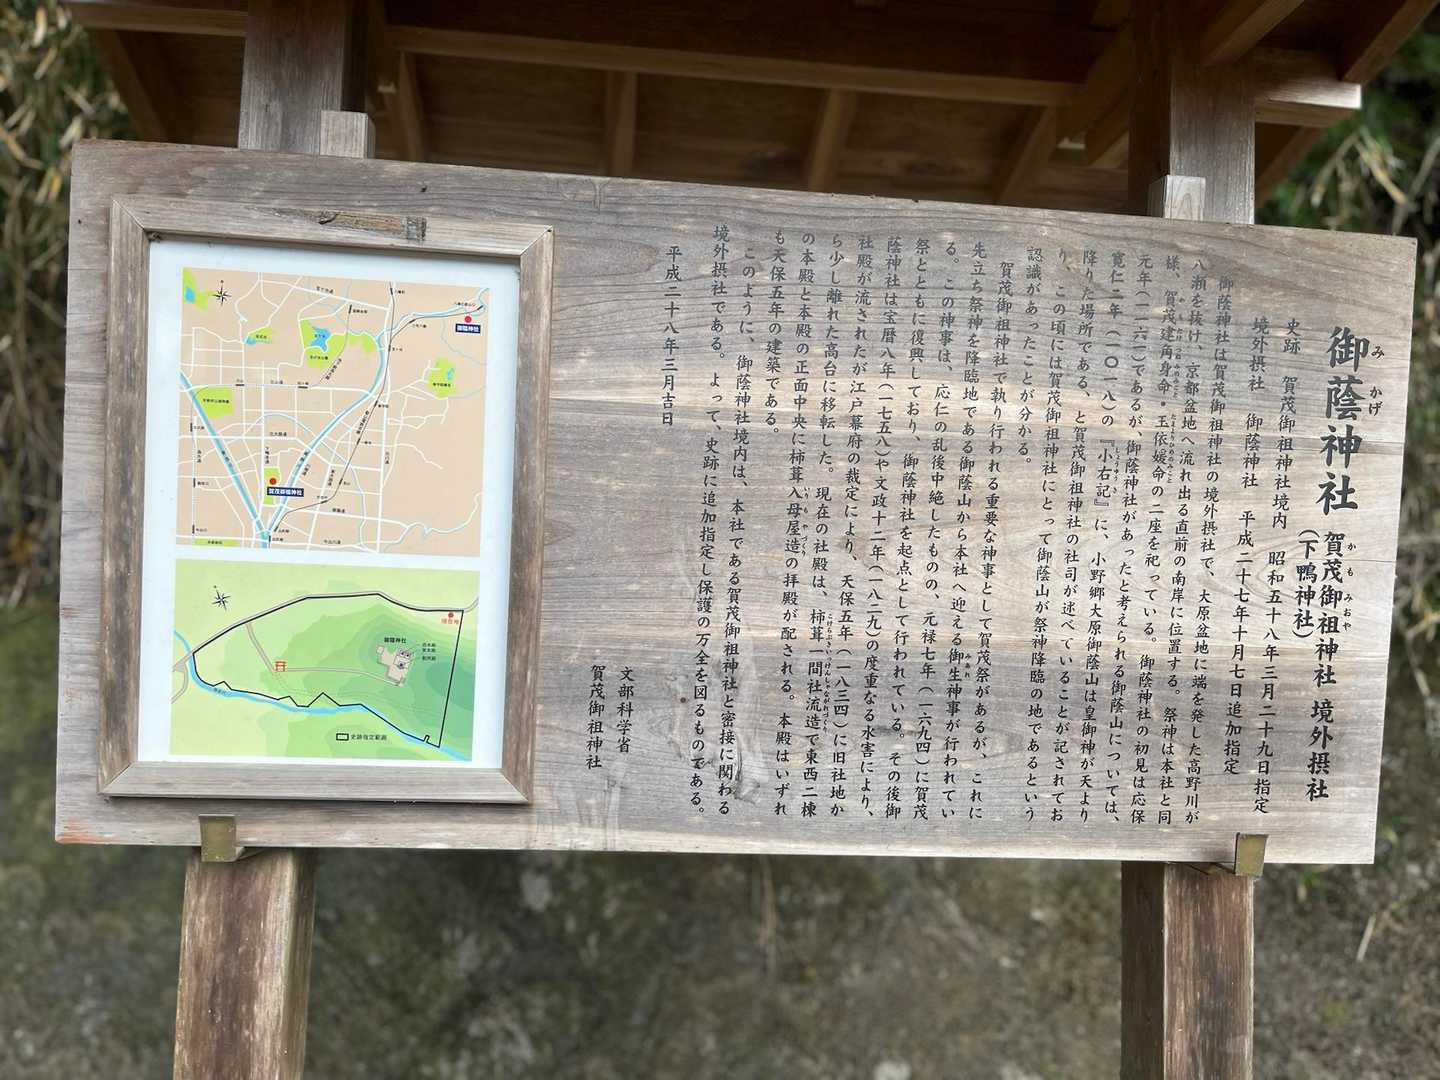 御蔭神社
みかげ
賀茂御祖神社 境外摂社
かもみおや
(下鴨神社)
史跡 賀茂御祖神社境内 昭和五十八年三月二十九日指定
境外摂社 御蔭神社 平成二十七年十月七日追加指定
御蔭神社は賀茂御祖神社の境外摂社で、大原盆地に端を発した高野川が
八瀬を抜け、京都盆地へ流れ出る直前の南岸に位置する。祭神は本社と同
様、賀茂建角身命・玉依媛命の二座を祀っている。御蔭神社の初見は応保
元年(一一六一)であるが、御蔭神社があったと考えられる御蔭山については、
寛仁二年(一〇一八)の『小右記』に、小野郷大原御蔭山は皇御神が天より
しょうゆうき
降りた場所である、と賀茂御祖神社の社司が述べていることが記されてお
り、この頃には賀茂御祖神社にとって御蔭山が祭神降臨の地であるという
認識があったことが分かる。
賀茂御祖神社で執り行われる重要な神事として賀茂祭があるが、これに
先立ち祭神を降臨地である御蔭山から本社へ迎える御生神事が行われてい
みあれ
る。この神事は、応仁の乱後中絶したものの、元禄七年(一六九四)に賀茂
祭とともに復興しており、御蔭神社を起点として行われている。その後御
蔭神社は宝暦八年(一七五八)や文政十二年(一八二九)の度重なる水害により、
社殿が流されたが江戸幕府の裁定により、天保五年(一八三四)に旧社地か
ら少し離れた高台に移転した。現在の社殿は、柿葺一間社流造で東西二棟
の本殿と本殿の正面中央に柿葺入母屋造の拝殿が配される。本殿はいずれ
も天保五年の建築である。
このように、御蔭神社境内は、本社である賀茂御祖神社と密接に関わる
境外摂社である。よって、史跡に追加指定し保護の万全を図るものである。
平成二十八年三月吉日
文部科学省
賀茂御祖神社
御蔭神社
賀茂御祖神社
現在地
御蔭神社
史跡指定範囲